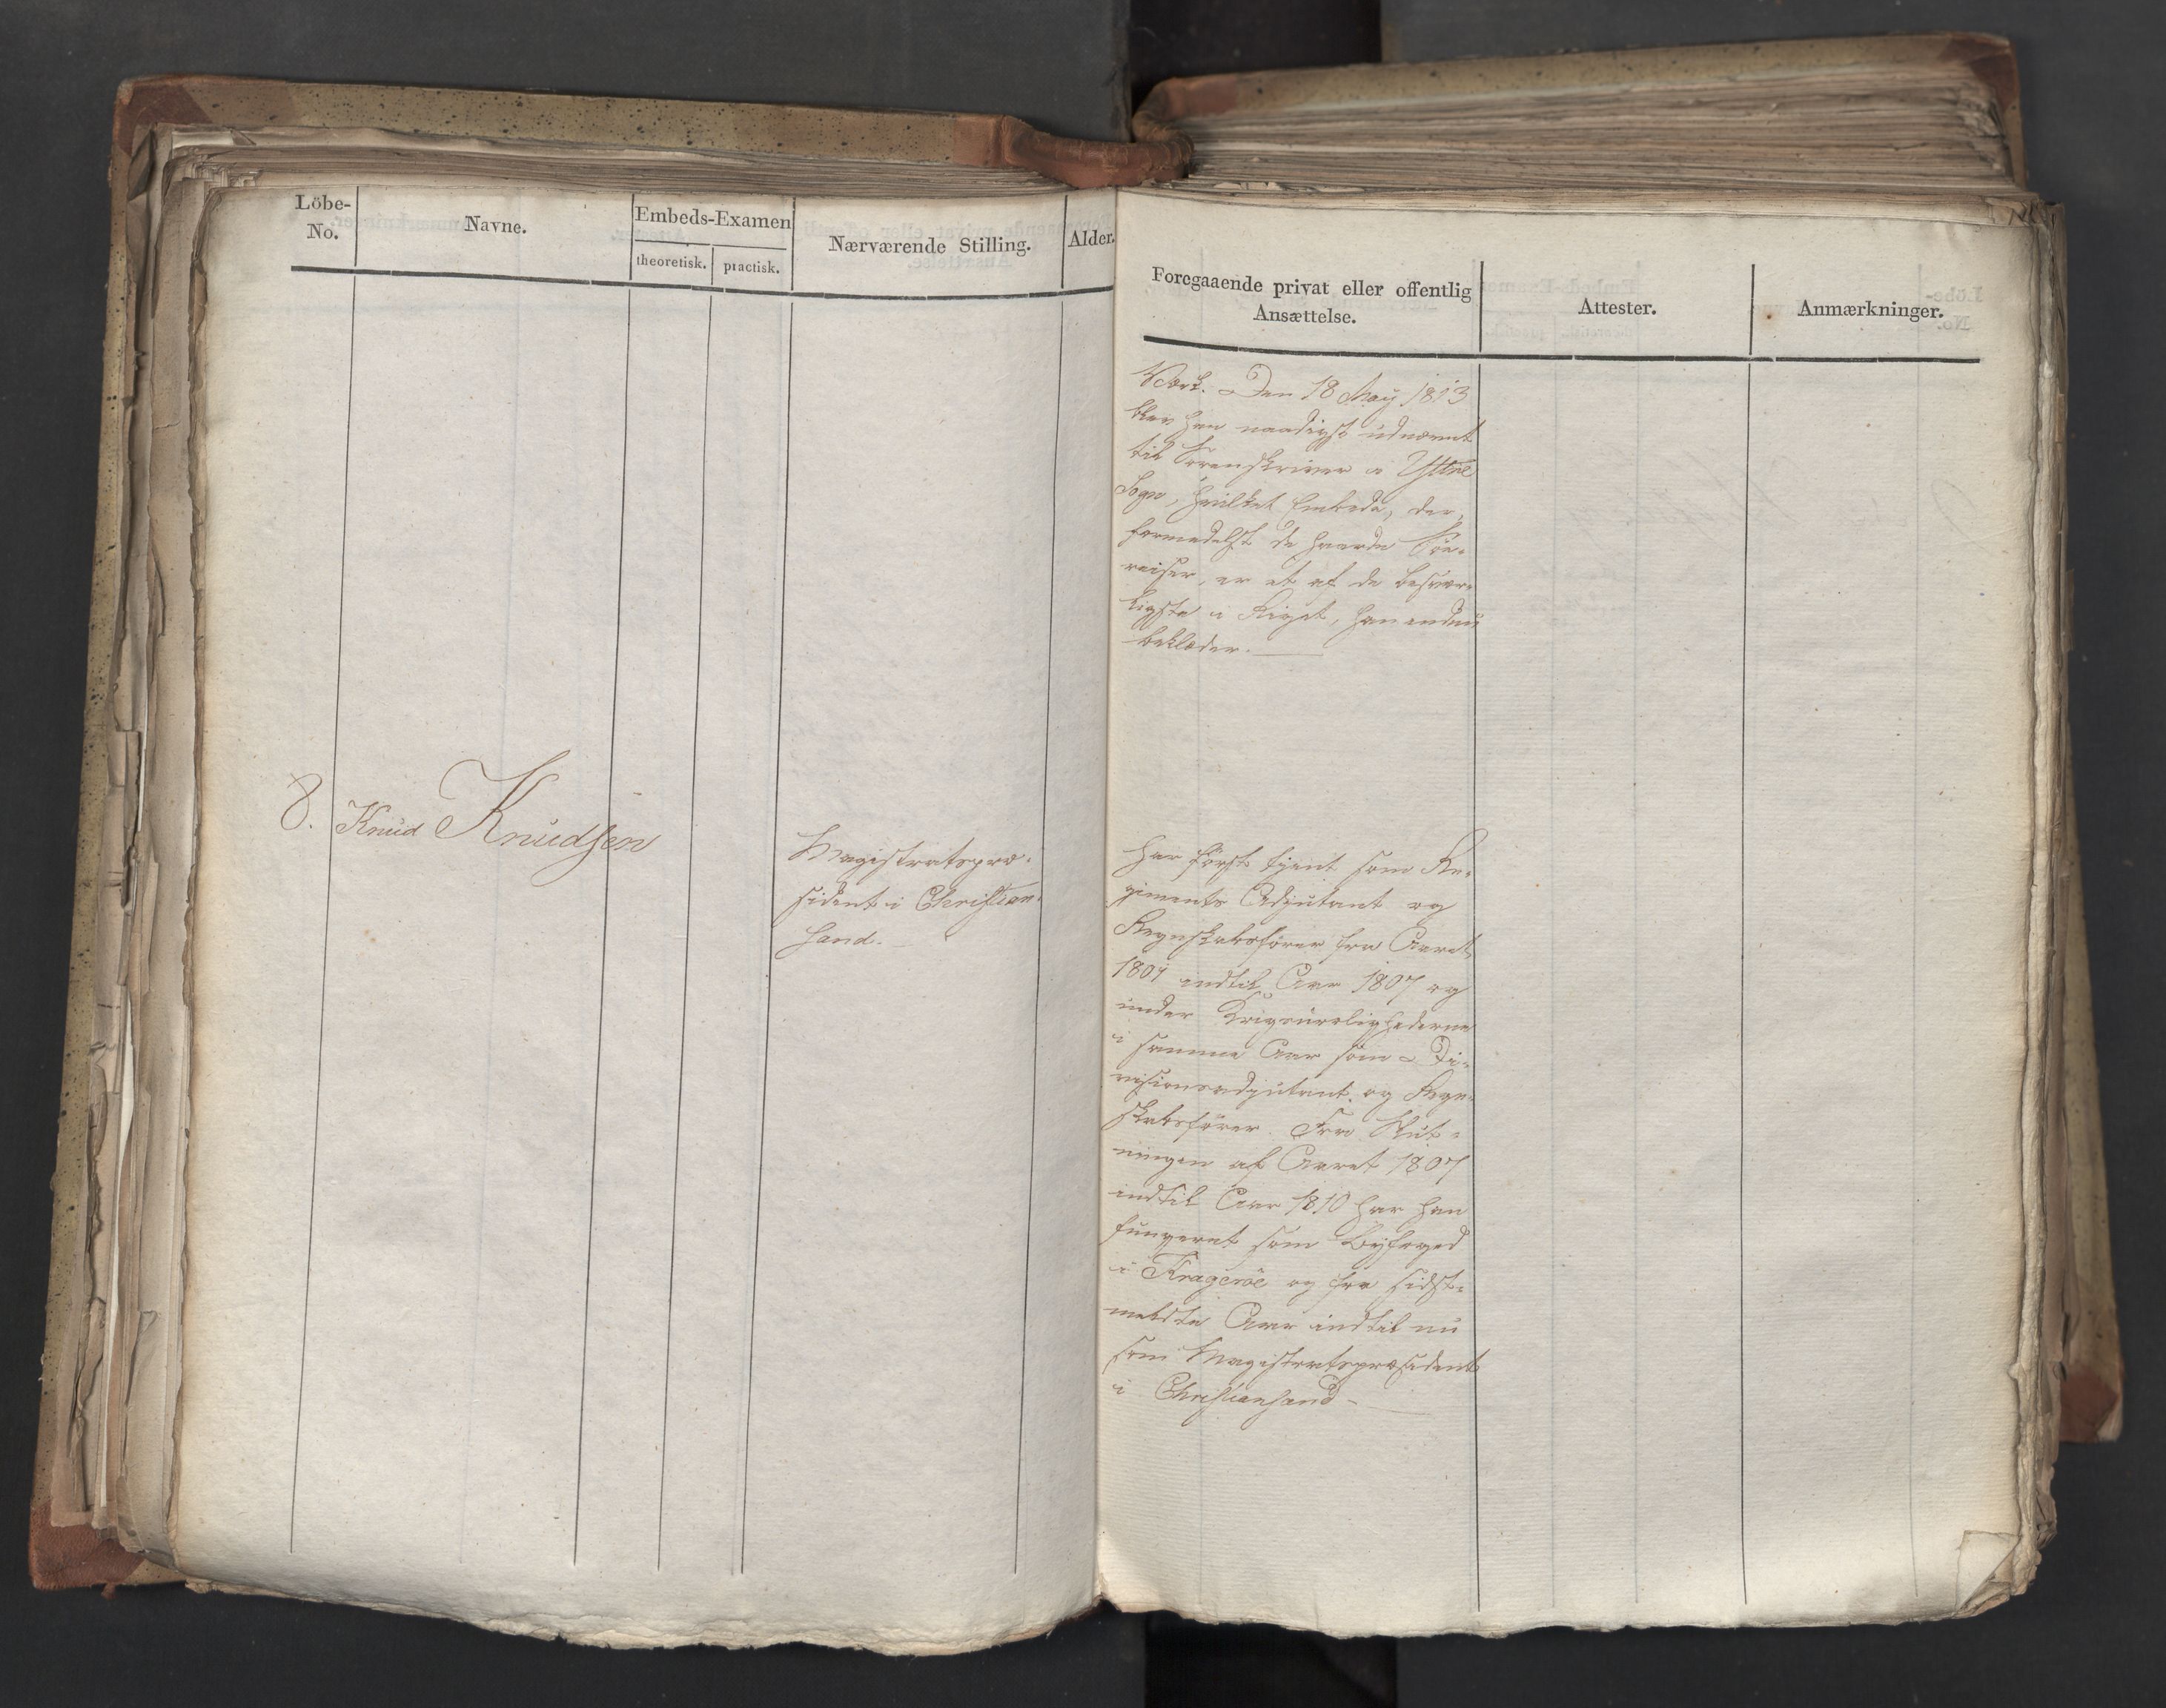 Löbe-
No.
Navne.
Embeds-Examen
theoretisk.
practisk.
Nærværende Stilling.
Alder.
8. Knud Knudsen
Magistratspræ-
sident i Christian-
sand.
Foregaaende privat eller offentlig
Ansættelse.
Attester.
Anmærkninger.
Værk. Den 18 May 1813
blev han naadigst udnævnt
til Sorenskriver i Yttre
Sogn, hvilket Embede, der,
formedelst de haarde Söe-
reiser, er et af de besvær-
ligste i Riget, han endnu
beklæder.
Har först tjent som Re-
giments Adjutant og
Regnskabsförer fra Aaret
1801 indtil Aar 1807 og
under Krigsurolighederne
i samme Aar som Di-
visionsadjutant og Regn-
skabsförer. Fra Slut-
ningen af Aaret 1807
indtil Aar 1810 har han
fungeret som Byfoged
i Krageröe og fra sidst-
meldte Aar indtil nu
som Magistratspræsident
i Christiansand